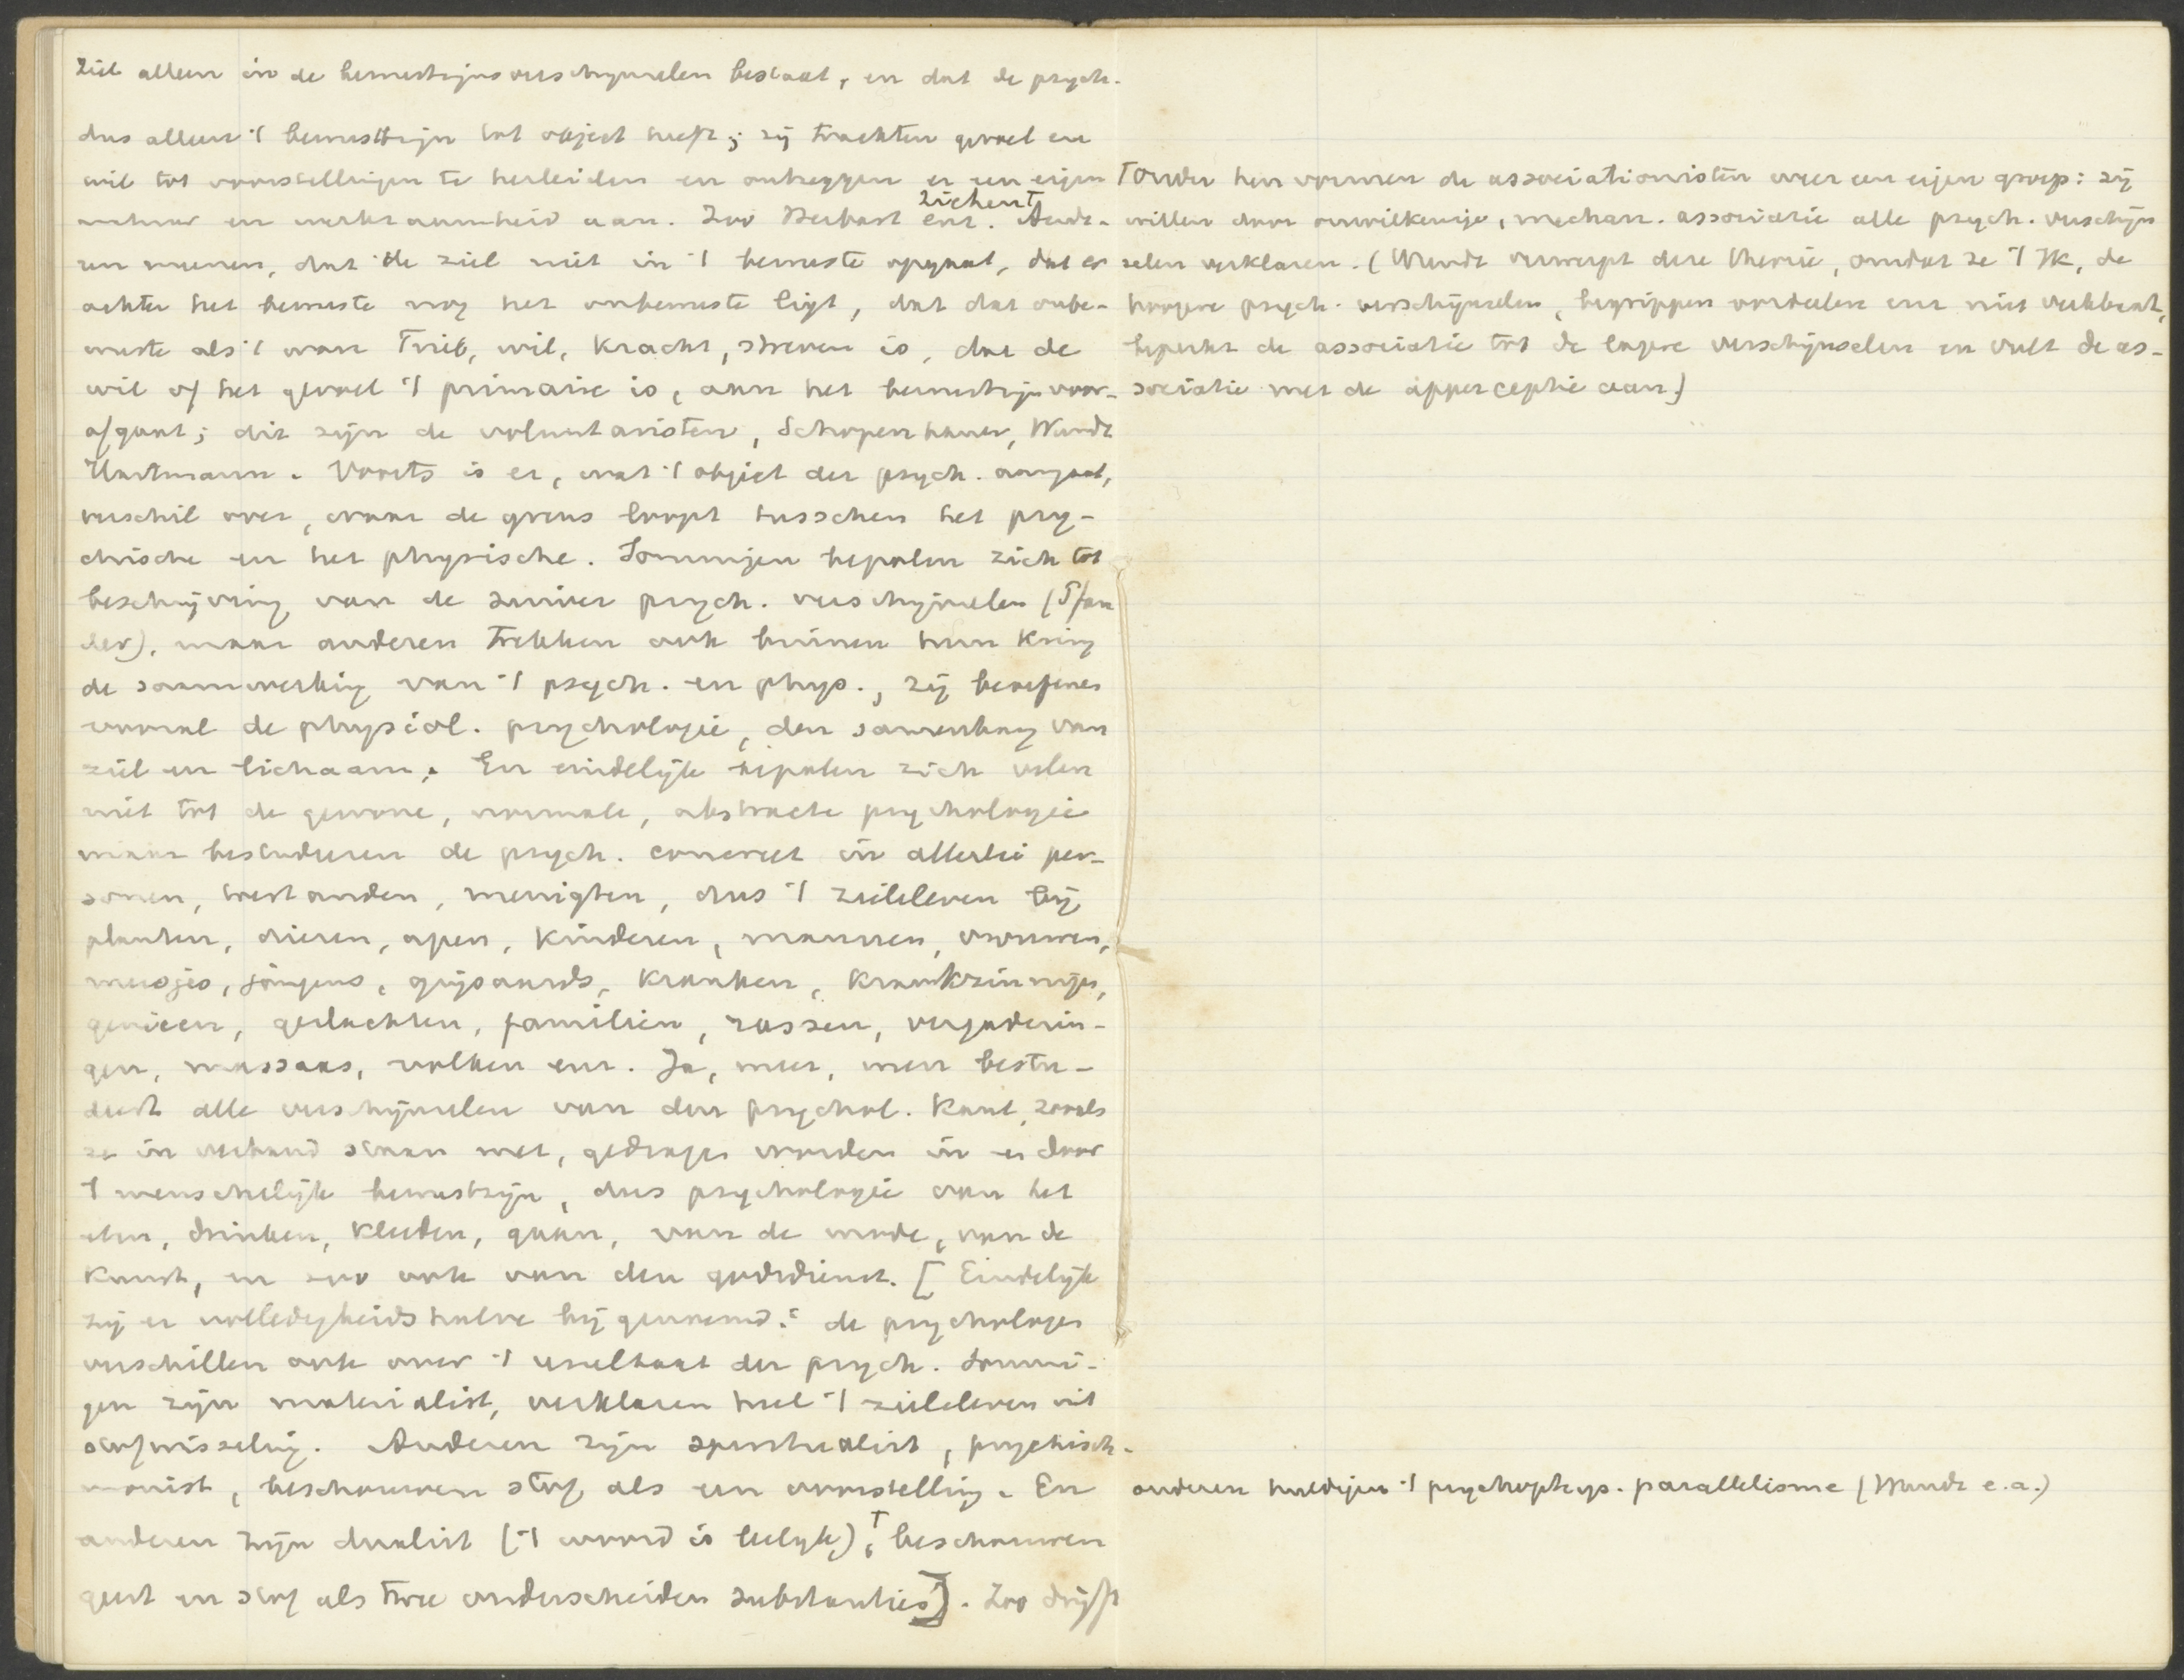 ziel alleen in de bewustzijnsverschijnselen bestaat, en dat de psych.
dus alleen 't bewustzijn tot object heeft; zij trachten gevoel en
wil tot voorstellingen te herleiden en ontzeggen er een eigen
natuur en werkzaamheid aan. Zoo Herbart enz. Ande-
Ziehen†
ren meenen, dat de ziel niet in 't bewuste opgaat, dat er
achter het bewuste nog het onbewuste ligt, dat dat onbe-
wuste als 't ware Trieb, wil, kracht, streven is, dat de
wil of het gevoel 't primaire is, aan het bewustzijn voor-
afgaat; dit zijn de voluntaristen, Schopenhauer, Wundt
Hartmann. Voorts is er, wat 't object der psych. aangaat,
verschil over, waar de grens loopt tusschen het psy-
chische en het physische. Sommigen bepalen zich tot
beschrijving van de zuiver psych. verschijnselen (Pfän
der), maar anderen trekken ook binnen hun kring
de samenwerking van 't psych. en phys., zij beoefenen
vooral de physiol. psychologie, den samenhang van
ziel en lichaam. En eindelijk bepalen zich velen
niet tot de gewone, normale, abstracte psychologie
maar bestudeeren de psych. concreet in allerlei per-
sonen, toestanden, menigten, dus 't zieleleven bij
planten, dieren, apen, kinderen, mannen, vrouwen,
meisjes, jongens, grijsaards, kranken, krankzinnigen,
genieën, geslachten, familiën, rassen, vergaderin-
gen, massaas, volken enz. Ja, meer, men bestu-
deert alle verschijnselen van den psychol. kant, zooals
ze in verband staan met, gedragen worden in en door
't menschelijk bewustzijn, dus psychologie van het
eten, drinken, kleeden, gaan, van de mode, van de
kunst, en zoo ook van den godsdienst. [Eindelijk
zij er volledigheidshalve bij genoemd: de psychologen
verschillen ook over 't resultaat der psych. Sommi-
gen zijn materialist, verklaren heel 't zieleleven uit
stofwisseling. Anderen zijn spiritualist, psychisch-
monist, beschouwen stof als een voorstelling. En
anderen zijn dualist ('t woord is leelijk),† beschouwen
geest en stof als twee onderscheiden substanties]. Zoo drijft
†onder hen vormen de associationisten weer een eigen groep: zij
willen door onwillekeurige, mechan. associatie alle psych. verschijn
selen verklaren. (Wundt verwerpt deze theorie, omdat ze 't Ik, de
hoogere psych. verschijnselen, begrippen oordeelen enz niet verklaart,
beperkt de associatie tot de lagere verschijnselen en vult de as-
sociatie met de apperceptie aan.)
anderen huldigen 't psychophys. parallelisme (Wundt e.a.)